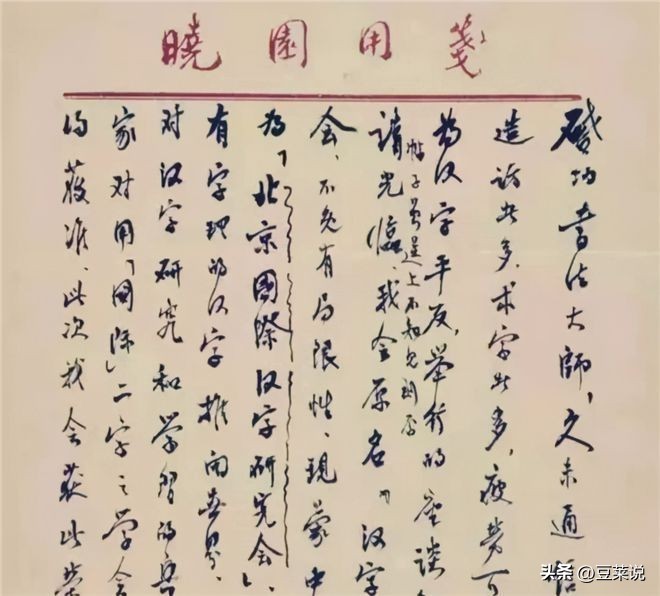 曉園用箋
啟功書法大師,久未通信
造访者多,求字者多,疲劳可
为汉字平反,举行的座谈
帖子曾送上不知见到否
请光临,我会原名"汉字
会,不免有局限性,现蒙中
为「北京國際汉字研究会」,
有字理的汉字推向世界,
对汉字研究和学习的
家对用「國际」二字之学会
得获准,此次我会获此荣
头条 @豆莱说